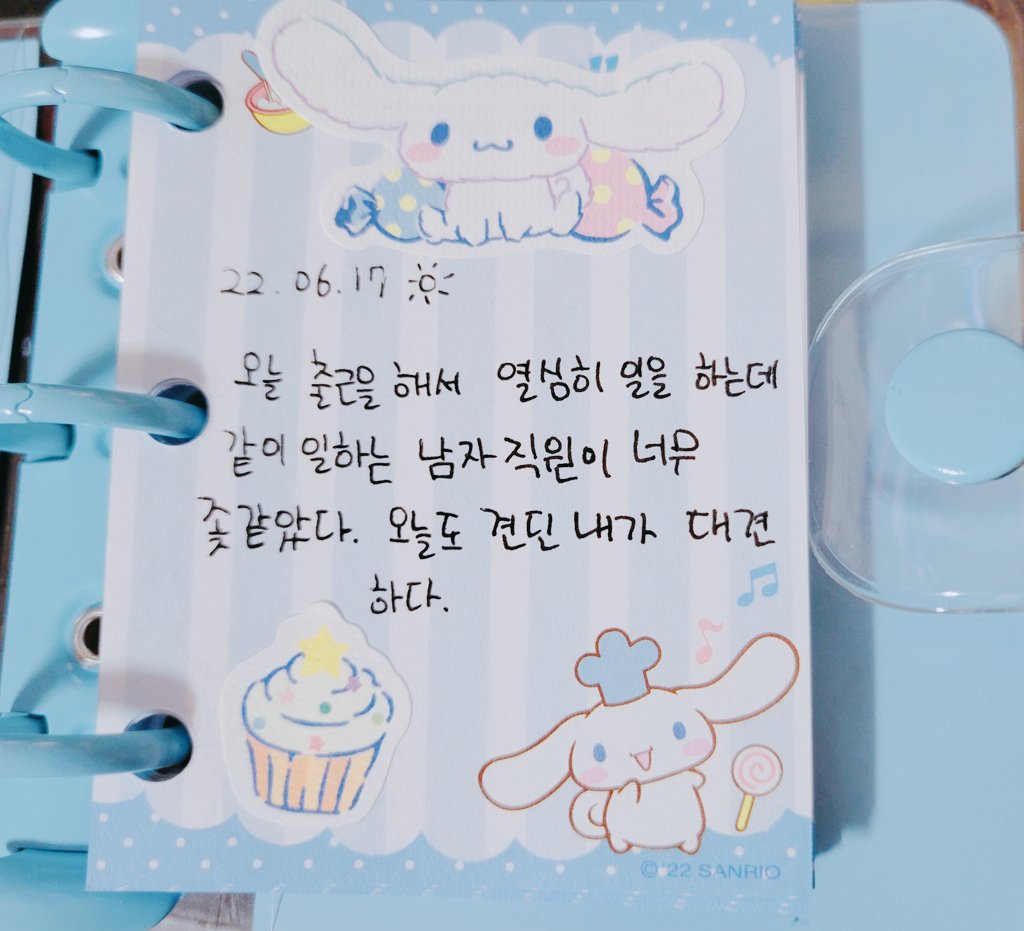 22.06.17
오늘 출근을 해서 열심히 일을 하는데
같이 일하는 남자직원이 너무
좆같았다. 오늘도 견딘 내가 대견
하다.
©'22 SANRIO